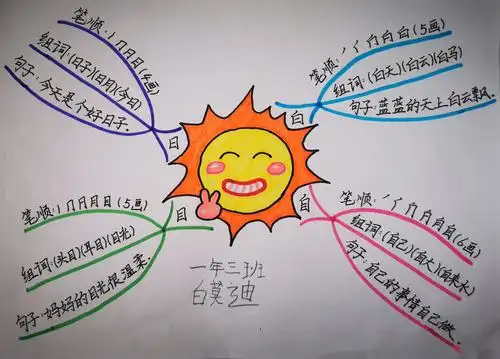 笔顺:丨冂月日(4画)
组词:(日子)(日月)(今日)
句子:今天是个好日子.
日
笔顺:丿亻冂白白(5画)
组词:(白天)(白云)(白马)
句子:蓝蓝的天上白云飘.
白
笔顺:丨冂月目目(5画)
组词:(头目)(耳目)(目光)
句子:妈妈的目光很温柔.
目
笔顺:丿亻冂自自自(6画)
组词:(自己)(自大)(自来水)
句子:自己的事情自己做.
自
一年三班
白莫迪